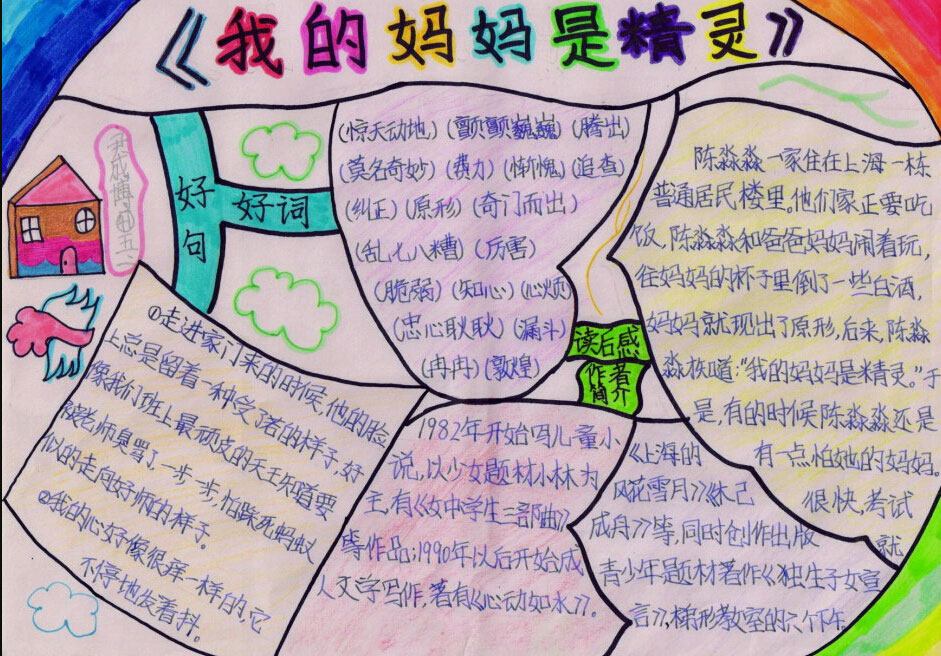 《我的妈妈是精灵》
好句
好词
(惊天动地)(颤颤巍巍)(腾出)
(莫名奇妙)(费力)(惭愧)(追查)
(纠正)(原形)(奇门而出)
(乱七八糟)(厉害)
(脆弱)(知心)(心烦)
(忠心耿耿)(漏斗)
(冉冉)(敦煌)
读后感
作者
简介
陈淼淼一家住在上海一栋
普通居民楼里。他们家正要吃
饭,陈淼淼和爸爸妈妈闹着玩,
往妈妈的杯子里倒了一些白酒,
妈妈就现出了原形,后来,陈淼
淼知道:"我的妈妈是精灵。"于
是,有的时候陈淼淼还是
有一点怕她的妈妈。
很快,考试
就
①走进家门来的时候,他的脸
上总是留着一种受了若的样子,好
像我们班上最顽皮的天王知道要
老师臭骂了一步一步,怕踩死蚂蚁
似的走向好师的样子。
②我的心好像很痒一样的,它
不停地发着抖。
1982年开始写儿童小
说,以少女题材小林为
主,有《女中学生三部曲》
等作品;1990年以后开始成
人文学写作,著有《心动如水》。
《上海的
风花雪月》《木已
成舟》等,同时创作出版
青少年题材著作《独生子女宣
言》,梯形教室的六个下午。